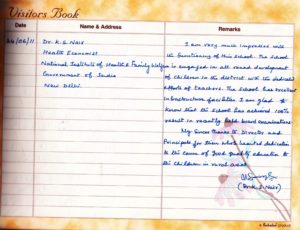 Visitors Book
Date
Name & Address
Remarks
24/06/11
Dr. K. S. Nair
Health Economist
National Institute of Health & Family Welfare
Government of India
New Delhi.
I am very much impressed with
the functioning of this school. The School
is engaged in all round development
of children in the district with the dedicated
efforts of teachers. The School has excellent
infrastructure facilities. I am glad to
know that the School has achieved 100%
result in recently held board examinations
My sincere thanks to Director and
Principals for their whole hearted dedication
to the cause of good quality education to
the children in rural area.
(Dr. K. S. Nair)